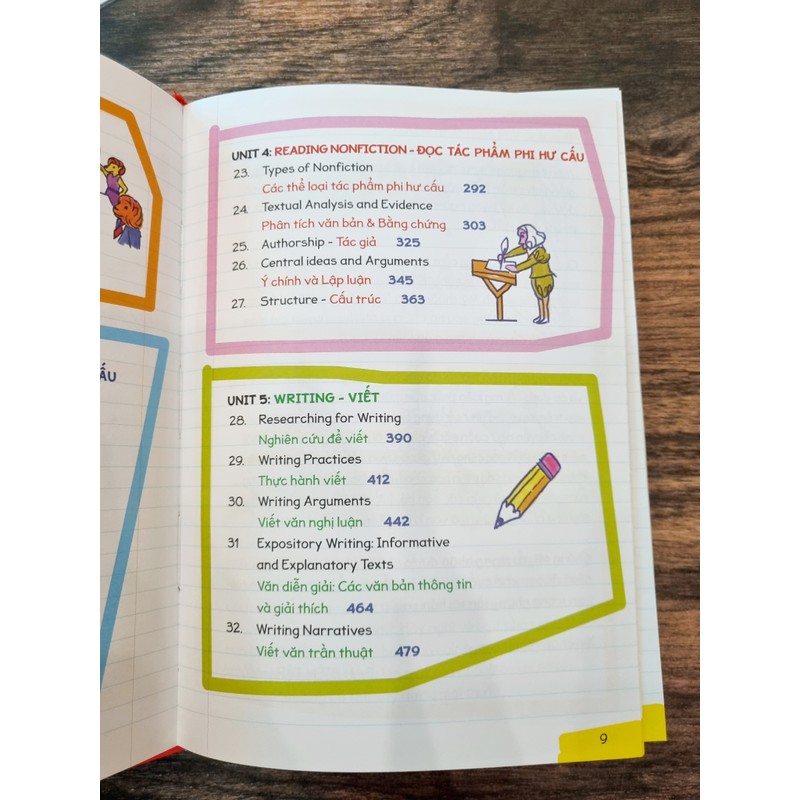 ẤU
UNIT 4: READING NONFICTION - ĐỌC TÁC PHẨM PHI HƯ CẤU
23. Types of Nonfiction
Các thể loại tác phẩm phi hư cấu 292
24. Textual Analysis and Evidence
Phân tích văn bản & Bằng chứng 303
25. Authorship - Tác giả 325
26. Central ideas and Arguments
Ý chính và Lập luận 345
27. Structure - Cấu trúc 363
UNIT 5: WRITING - VIẾT
28. Researching for Writing
Nghiên cứu để viết 390
29. Writing Practices
Thực hành viết 412
30. Writing Arguments
Viết văn nghị luận 442
31 Expository Writing: Informative
and Explanatory Texts
Văn diễn giải: Các văn bản thông tin
và giải thích 464
32. Writing Narratives
Viết văn trần thuật 479
9